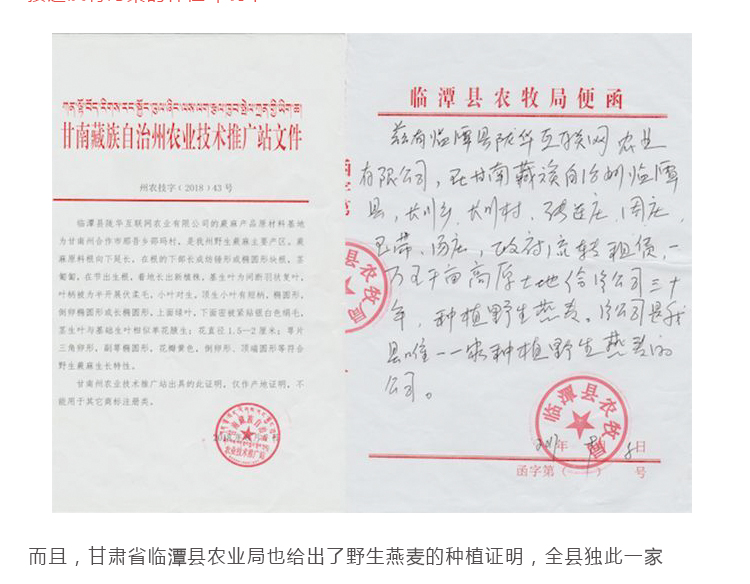 甘南藏族自治州农业技术推广站文件
州农技字（2018）43号
临潭县陇华互联网农业有限公司的蕨麻产品原材料基地
为甘南州合作市那吾乡部玛村，是我州野生蕨麻主要产区。蕨
麻原料根向下延长，在根的下部长成纺锤形或椭圆形块根，茎
匍匐，在节出生根，着地长出新植株，基生叶为间断羽状复叶，
叶柄被为半开展伏柔毛，小叶对生，顶生小叶有短柄，椭圆形，
倒卵椭圆形或长椭圆形，上面绿叶，下面密被紧贴银白色绢毛，
茎生叶与基础生叶相似单花腋生；花直径1.5—2厘米；萼片
三角卵形，副萼椭圆形，花瓣黄色，倒卵形、顶端圆形等符合
野生蕨麻生长特性。
甘南州农业技术推广站出具的此证明，仅作产地证明，不
能用于其它商标注册类。
农业技术推广站
临潭县农牧局便函
兹有临潭县陇华互联网农业
有限公司，在甘南藏族自治州临潭
县，长川乡，长川村，
政府流转租赁一
万五千亩高原土地给冷公司三十
年，种植野生燕麦。冷公司是我
县唯一一家种植野生燕麦的
公司。
临潭县农牧局
2017年 8 日
函字第（ ）号
而且，甘肃省临潭县农业局也给出了野生燕麦的种植证明，全县独此一家